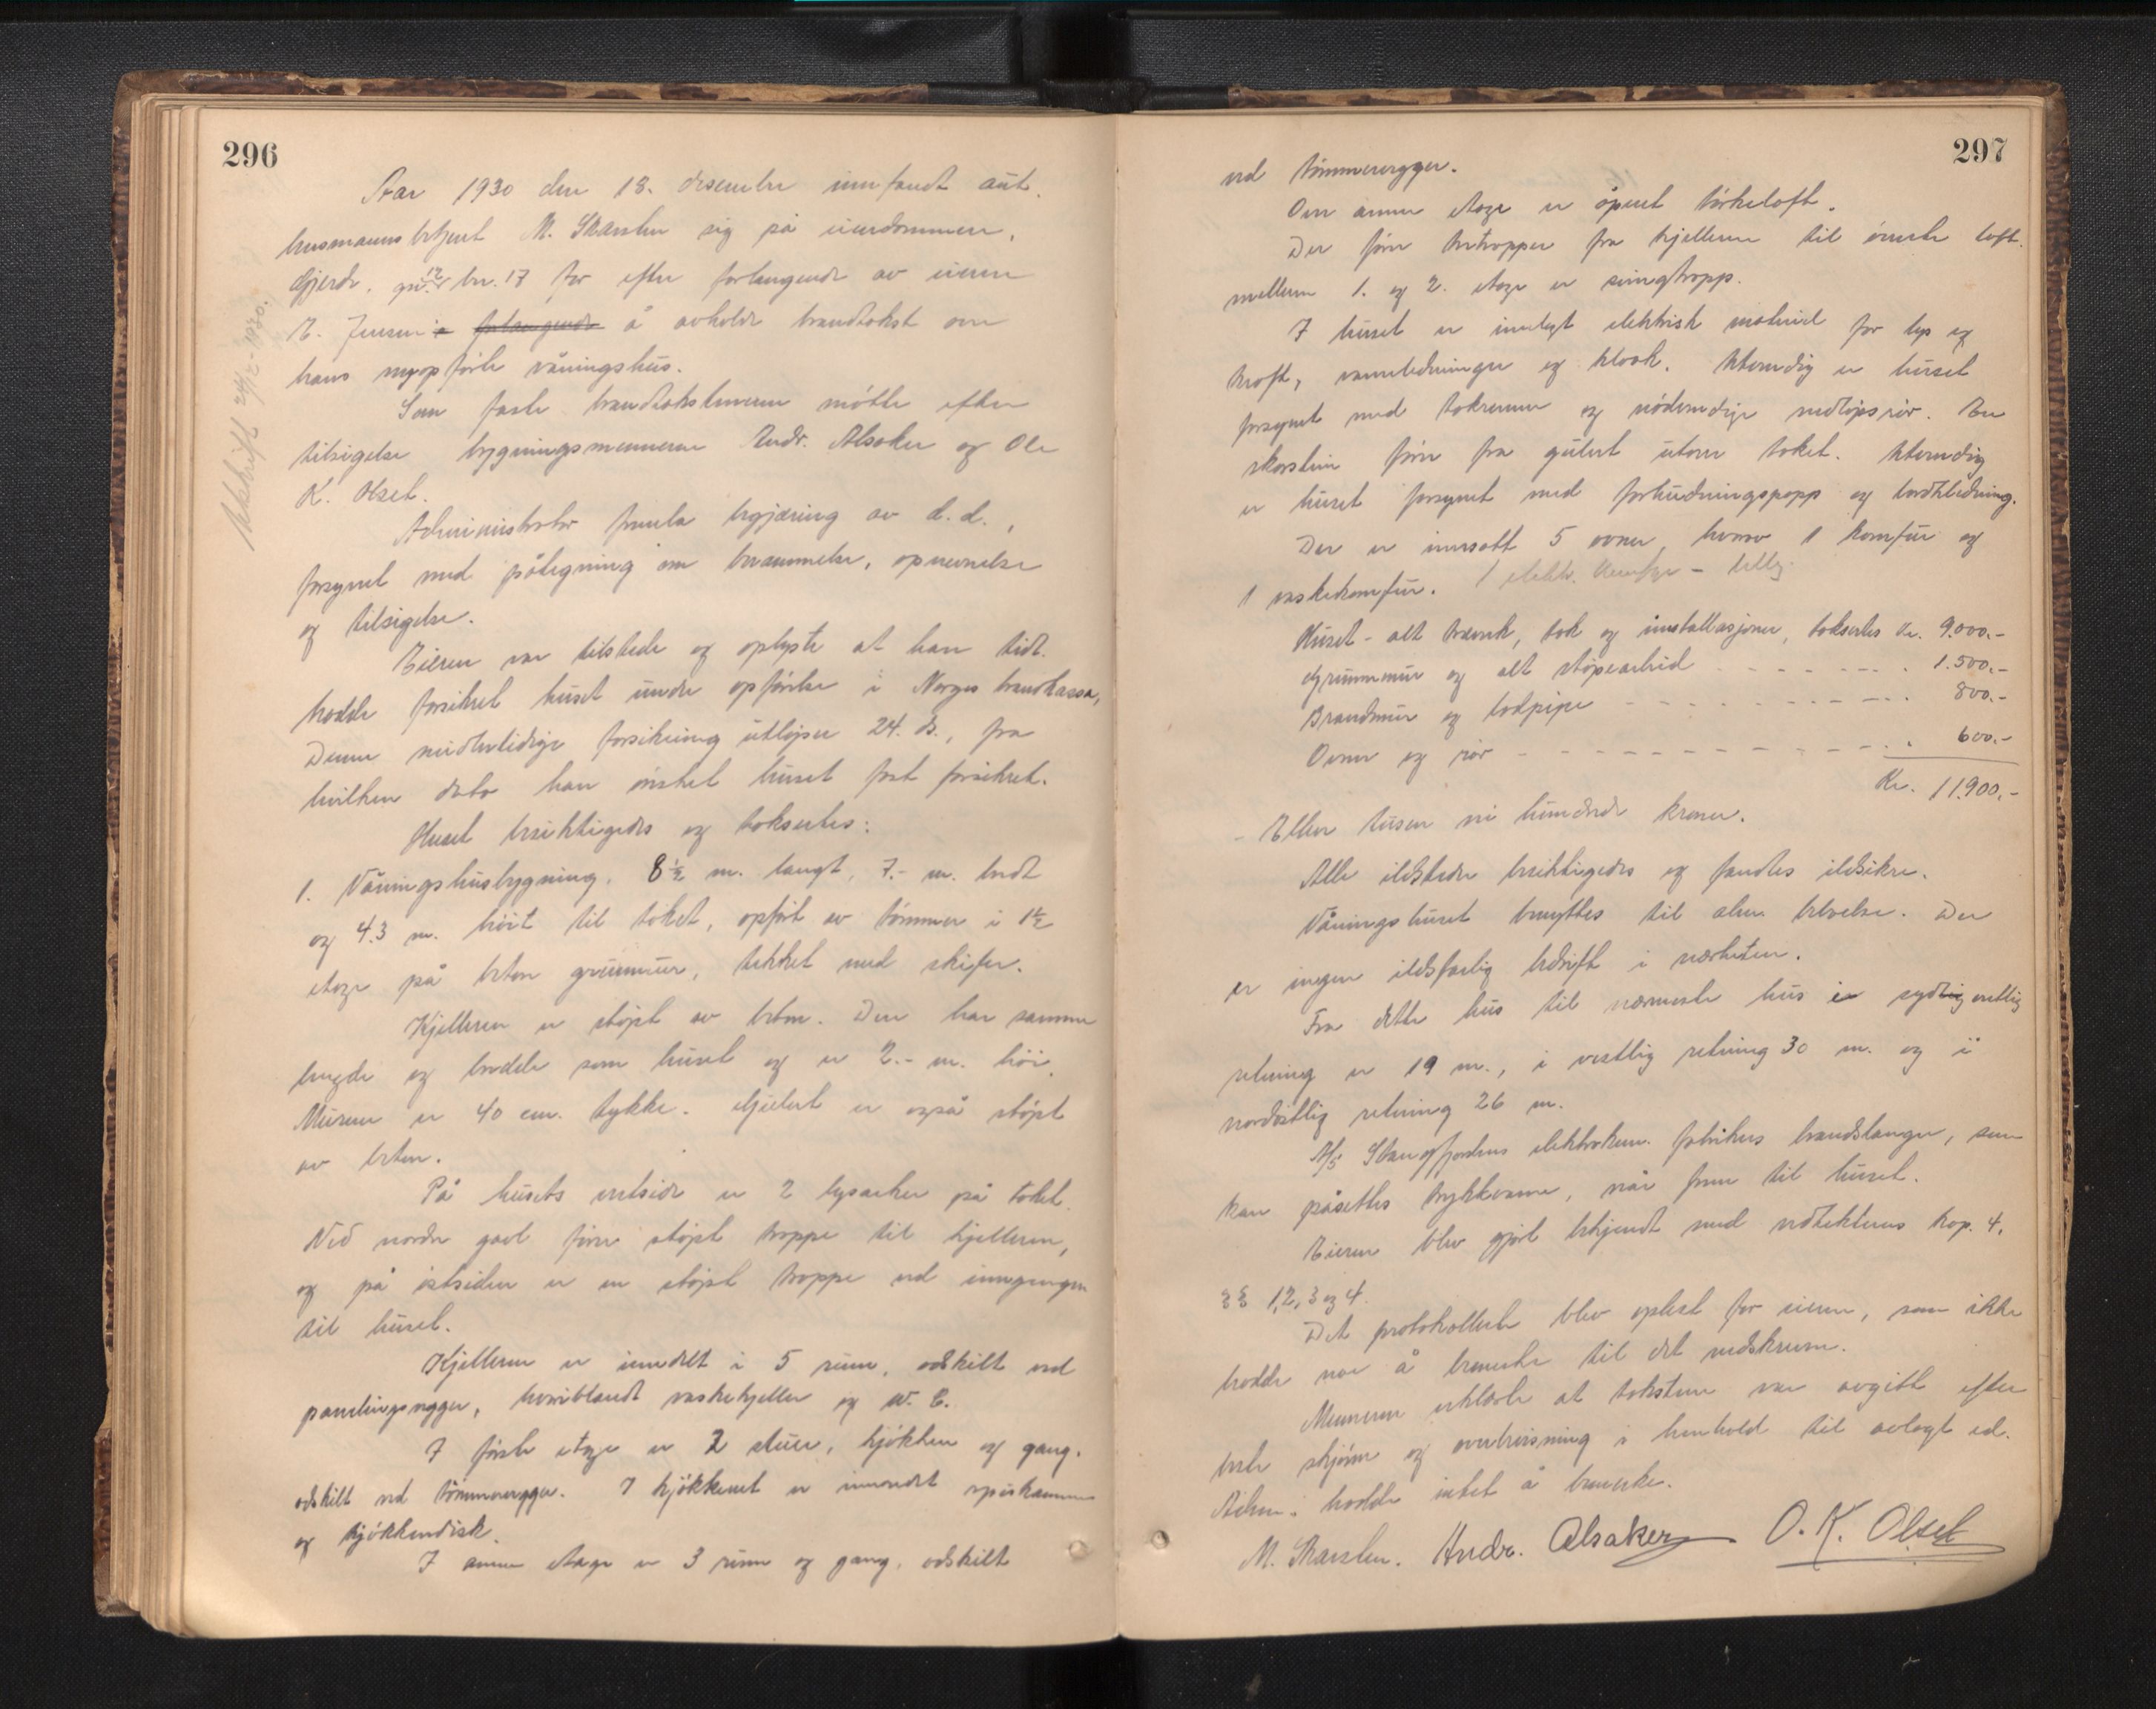 296
År 1930 den 18. desember innfandt aut.
lensmannsbetjent M. Skarsten sig på eiendommen,
Gjerde, gnr. 12 bnr. 17 for efter forlangende av eieren
E. Jensen å avholde brandtakst over
hans nyopförte våningshus.
Som faste brandtakstmenn mötte efter
tilsigelse bygningsmennene Andr. Alsaker og Ole
K. Olset.
Administrator fremla begjæring av d.d.,
forsynet med påtegning om berammelse, opnevnelse
og tilsigelse.
Eieren var tilstede og oplyste at han tidl.
hadde forsikret huset under opförelse i Norges brandkassa,
Denne midlertidige forsikring utlöper 24. ds., fra
hvilken dato han önsket huset fast forsikret.
Huset besiktigedes og taksertes:
1. Våningshusbygning, 8½ m. langt, 7.- m. bredt
og 4.3 m. höit til taket, opfört av tömmer i 1½
etage på beton grunnmur, tekket med skifer.
Kjelleren er stöpt av beton. Den har samme
lengde og bredde som huset og er 2.- m. höi.
Muren er 40 cm. tykke. Gulvet er også stöpt
av beton.
På husets vestside er 2 lysarker på taket.
Ved nordre gavl förer stöpt trappe til kjelleren,
og på östsiden er en stöpt trappe ved inngangen
til huset.
Kjelleren er inndelt i 5 rum, adskilt ved
panelingsvegger, hvoriblandt vaskekjeller og W.C.
I förste etage er 2 stuer, kjökken og gang,
adskilt ved tömmervegger. I kjökkenet er innredet spiskammer
og kjökkendisk.
I annen etage er 3 rum og gang, adskilt
Utskrift 24/12-1930.
297
ved tömmervegger.
Over annen etage er åpent törkeloft.
Der förer tretrapper fra kjelleren til överste loft.
mellem 1. og 2. etage er svingtrapp.
I huset er innlagt elektrisk materiel for lys og
kraft, vannledninger og kloak. Utvendig er huset
forsynet med takrenner og nödvendige nedlöpsrör. En
skorstein förer fra gulvet utover taket. Utvendig
er huset forsynet med forhudningspapp og bordkledning.
Der er innsatt 5 ovner, hvorav 1 komfur og
1 vaskekomfur. 1 elektr. komfyr - tilleg.
Huset - alt treverk, tak og installasjoner, taksertes kr. 9.000.-
Grunnmur og alt stöpearbeid - - - - - - 1.500.-
Brandmur og bodpipe - - - - - - - - 800.-
Ovner og rör - - - - - - - - - - - - 600.-
Kr. 11.900.-
- Elleve tusen ni hundrede kroner.
Alle ildsteder besiktigedes og fandtes ildsikre.
Våningshuset benyttes til alm. beboelse. Der
er ingen ildsfarlig bedrift i nærheten.
Fra dette hus til nærmeste hus i sydvestlig
retning er 19 m., i vestlig retning 30 m. og i
nordöstlig retning 26 m.
A/S Stangfjordens elektrokem. fabrikers brandslanger, som
kan påsettes trykkvann, når frem til huset.
Eieren blev gjort bekjendt med vedtektenes kap. 4,
§§ 1, 2, 3 og 4.
Det protokollerte blev oplest for eieren, som ikke
hadde noe å bemerke til det nedskrevne.
Mennene erklærte at taksten var avgitt efter
beste skjönn og overbevisning i henhold til avlagt ed.
Adm. hadde intet å bemerke.
M. Skarsten. Andr. Alsaker O. K. Olset